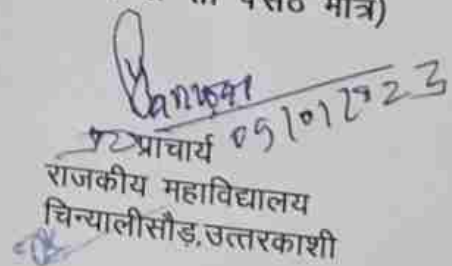 मात्र)
09/01/2023
प्राचार्य
राजकीय महाविद्यालय
चिन्यालीसौड़,उत्तरकाशी